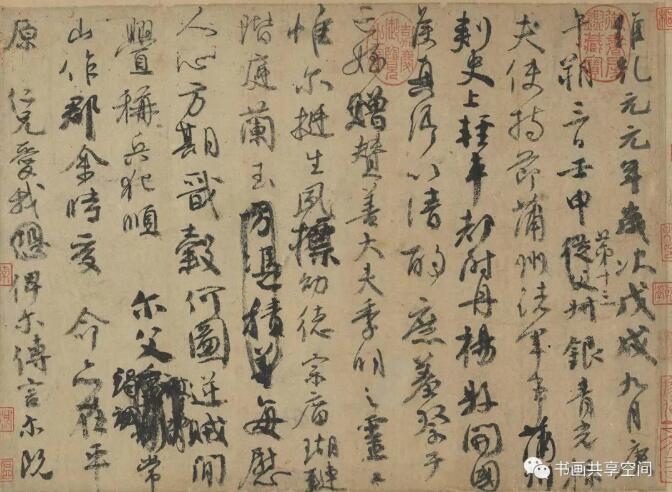 維乾元元年歲次戊戌九月庚
午朔三日壬申第十三從父叔銀青光祿
夫使持節蒲州諸軍事蒲州
刺史上輕車都尉丹楊縣開國
侯真卿以清酌庶羞祭于
亡姪贈贊善大夫季明之靈曰
惟爾挺生夙標幼德宗廟瑚璉
階庭蘭玉方憑積善每慰
人心方期戩穀何圖逆賊閒
釁稱兵犯順爾父竭誠常
山作郡余時受命亦在平
原仁兄愛我俾爾傳言爾既
书画共享空间